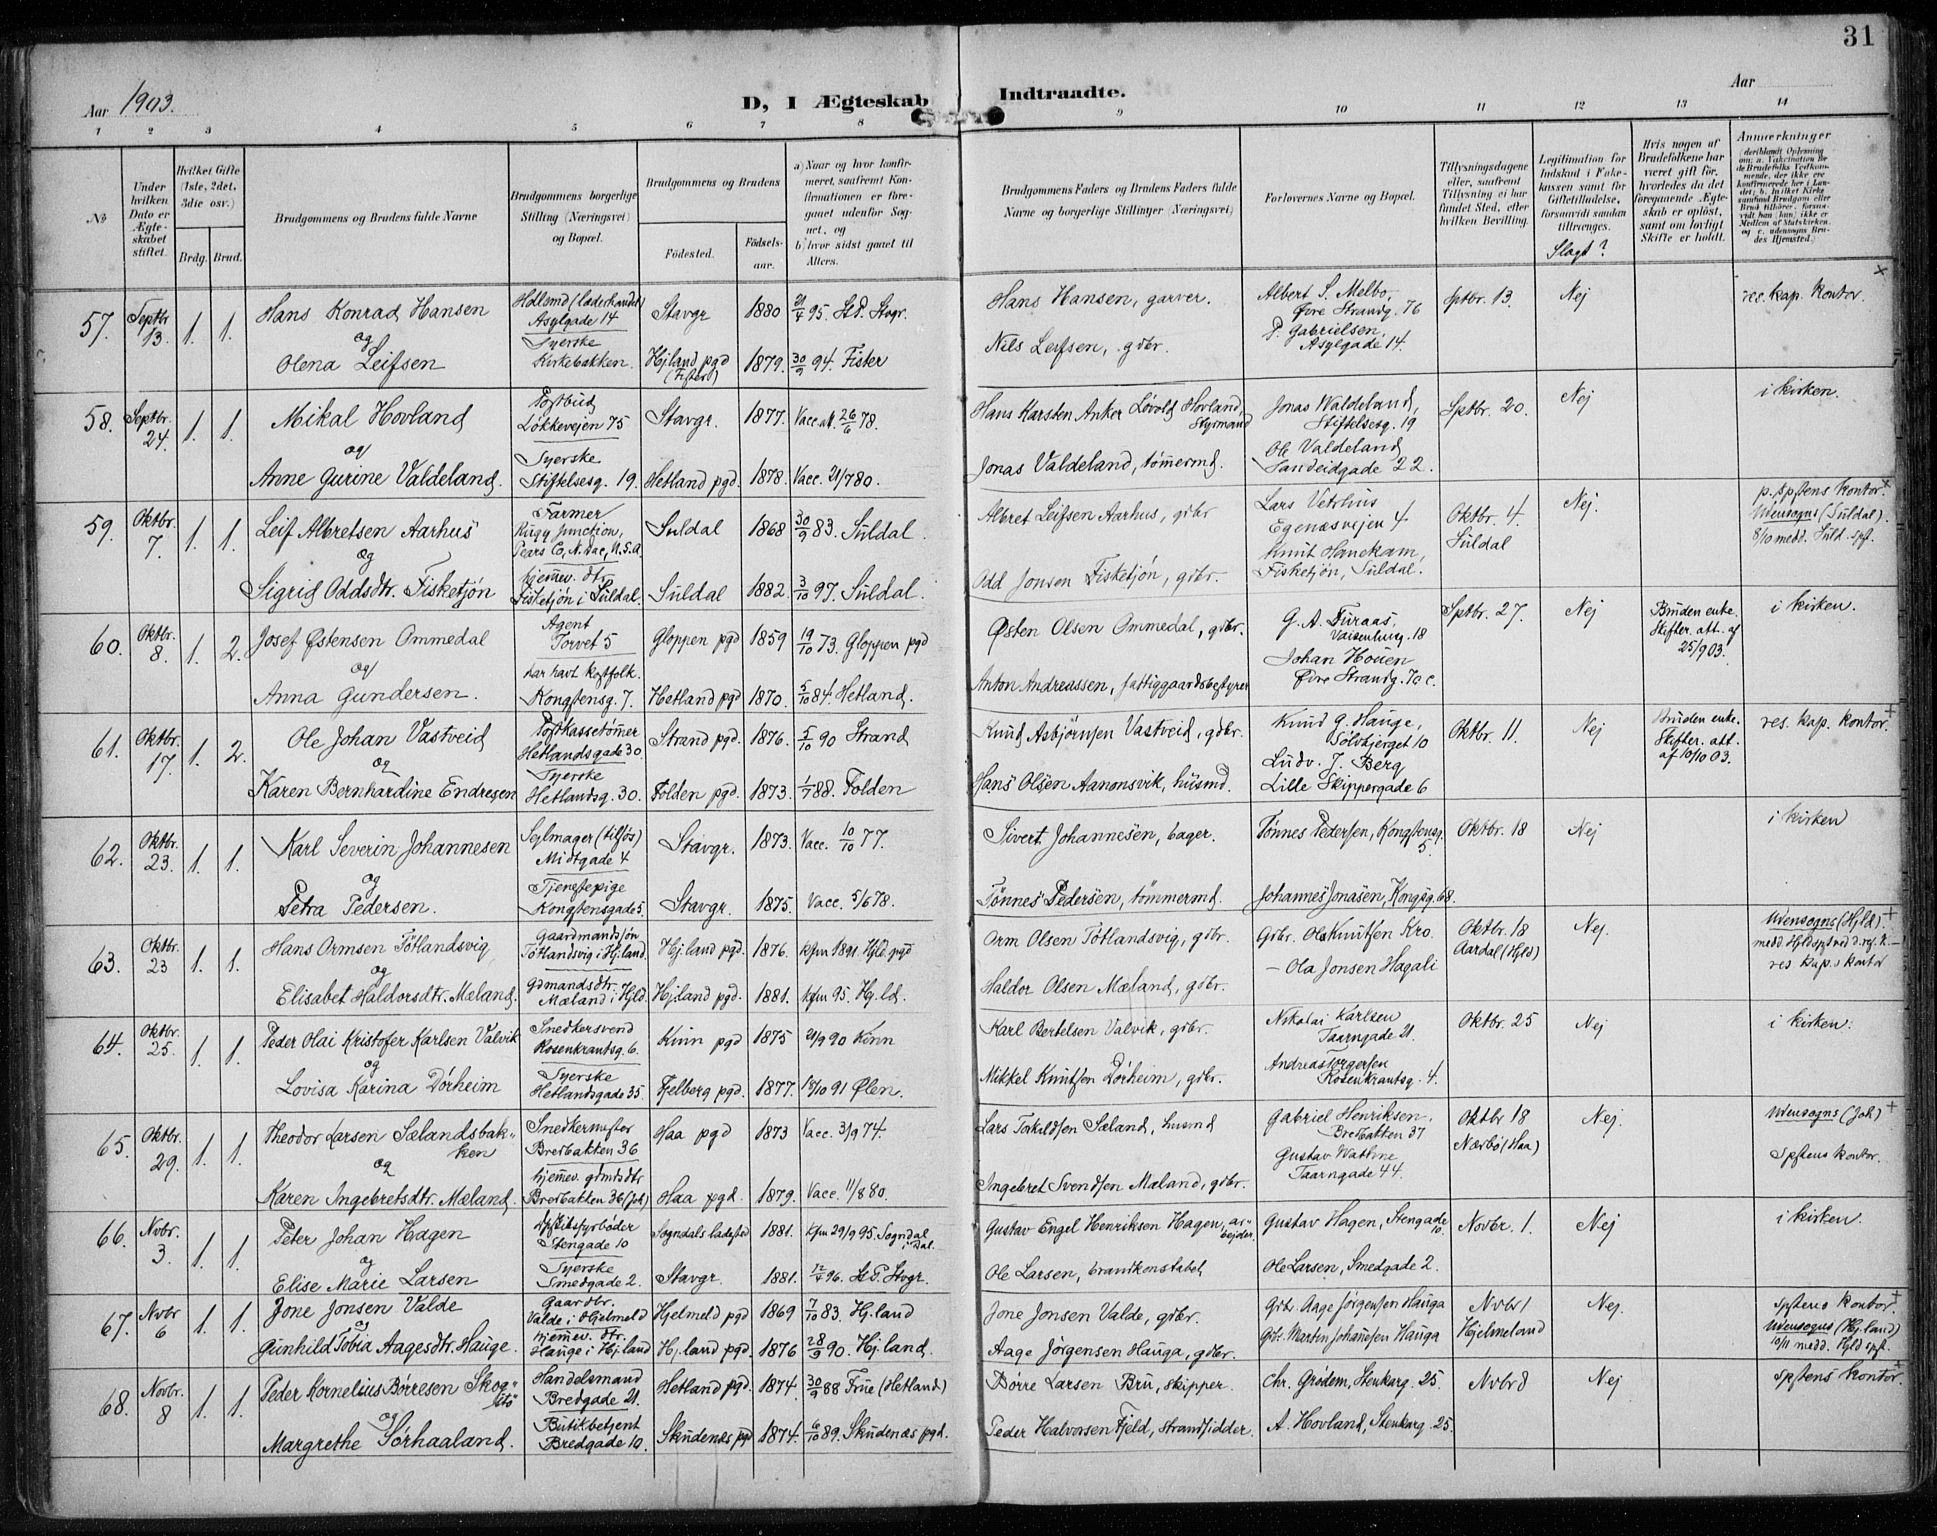 31
Aar 1903.
D, I Ægteskab Indtraadte.
Aar
1 2 3 4 5 6 7 8 9 10 11 12 13 14
No
Under hvilken Dato er Ægteskabet stiftet.
Hvilket Gifte (1ste, 2det, 3die osv.)
Brdg. Brud.
Brudgommens og Brudens fulde Navne
Brudgommens borgerlige Stilling (Næringsvei) og Bopæl.
Brudgommens og Brudens
Fødested. Fødselsaar.
a) Naar og hvor konfirmeret, saafremt Konfirmationen er foregaaet udenfor Sognet, og
b) hvor sidst gaaet til Alters.
Brudgommens Faders og Brudens Faders fulde Navne og borgerlige Stillinger (Næringsvei)
Forlovernes Navne og Bopæl.
Tillysningsdagene eller, saafremt Tillysning ei har fundet Sted, efter hvilken Bevilling.
Legitimation for Indskud i Enkekassen samt for Giftetilladelse, forsaavidt saadan tiltrænges.
Slægt?
Hvis nogen af Brudefolkene har været gift før, hvorledes da det foregaaende Ægteskab er opløst, samt om lovligt Skifte er holdt.
Anmærkninger
57. Septbr 13. 1. 1. Hans Konrad Hansen Hdlsmd (læderhandel) Asylgade 14 Stavgr 1880 21/4 95. St. P. Stvgr. Hans Hansen, garver. Albert S. Melbo, Øvre Strandg. 76 Sptbr. 13. Nej res. kap. kontor. x
og
Olena Leifsen Syerske Kirkebakken. Hjland pgd (Fister) 1879. 30/9 94. Fister Nils Leifsen, gdbr. P. Gabrielsen, Asylgade 14.
58. Septbr. 24. 1. 1. Mikal Hovland Postbud Løkkevejen 75 Stavgr. 1877. Vacc.at. 26/6 78. Hans Karsten Anker Løvold Hovland, Styrmand Jonas Waldeland, Stiftelsesg. 19 Sptbr. 20. Nej i kirken.
og
Anne Gurine Valdeland. Syerske Stiftelsesg. 19. Hetland pgd. 1878. Vacc. 21/7 80. Jonas Valdeland, tømmermd. Ole Valdeland Sandeidgade 22.
59. Oktbr. 7. 1. 1. Leif Albretsen Aarhus Farmer Rugg Junction, Pears Co, N. Dac, U.S.A. Suldal 1868 30/9 83. Suldal. Albret Leifsen Aarhus, gdbr Lars Vetrhus Egenæsvejen 4 Oktbr. 4. Suldal Nej. p. spstens kontor. x Udensogns (Suldal). 8/10 medd. Suld. spf.
og
Sigrid Oddsdtr. Fisketjøn hjemmev. dtr. Fisketjøn i Suldal. Suldal 1882. 3/10 97. Suldal. Odd Jonsen Fisketjøn, gdbr. Knut Hanekam, Fisketjøn, Suldal.
60. Oktbr. 8. 1. 2. Josef Østensen Ommedal Agent Torvet 5 Gloppen pgd 1859 19/10 73. Gloppen pgd Østen Olsen Ommedal, gdbr. G. A. Furaas, Vaisenhusg. 18 Sptbr. 27. Nej Bruden enke. Skifter. att. af 25/9 03. i kirken.
og
Anna Gundersen. har havt kostfolk. Kongstensg. 7. Hetland pgd 1870. 5/10 84. Hetland. Anton Andreassen, fattiggaardsbestyrer Johan Houen Øvre Strandg. 70 c.
61. Oktbr. 17. 1. 2. Ole Johan Vastveid Postkassetømmer Hetlandsgade 30 Strand pgd. 1876. 5/10 90 Strand Knud Asbjørnsen Vastveid, gdbr. Knud G. Hauge, Sølvbjerget 10 Oktbr. 11. Nej Bruden enke. Skifter. att. af 10/10 03. res. kap. kontor +
og
Karen Bernhardine Endresen Syerske Hetlandsg. 30. Folden pgd. 1873. 1/7 88. Folden Hans Olsen Aanonsvik, husmd. Ludv. J. Berg Lille Skippergade 6
62. Oktbr. 23. 1. 1. Karl Severin Johannesen Sejlmager (tilsjøs) Midtgade 4 Stavgr. 1873. Vacc. 10/10 77. Sivert Johannesen, bager. Tønnes Pedersen, Kongstensg. 5. Oktbr. 18 Nej i kirken
og
Petra Pedersen. Tjenestepige Kongstensgade 5. Stavgr. 1875. Vacc. 5/6 78. Tønnes Pedersen, tømmermd. Johannes Jonasen, Kongsg. 68.
63. Oktbr. 23 1. 1. Hans Ormsen Tøtlandsvig, Gaardmandssøn Tøtlandsvig i Hjland. Hjland pgd. 1876. kfm 1891 Hjld. pgd Orm Olsen Tøtlandsvig, gdbr. Gdbr. Ola Knutsen Kro Oktbr. 18 Aardal (Hjld) Nej. Udensogns (Hjld). +
og
Elisabet Haldorsdtr. Mæland. Gdmandsdtr. Mæland i Hjld. Hjland pgd. 1881. kfm 95. Hjld. Haldor Olsen Mæland, gdbr. — Ola Jonsen Hagali res kap.s kontor
64. Oktbr. 25. 1. 1. Peder Olai Kristofer Karlsen Valvik Snedkersvend Rosenkrantsg. 6. Kinn pgd 1875 21/9 90 Kinn Karl Bertelsen Valvik, gdbr. Nikolai Karlsen Taarngade 21. Oktbr. 25 Nej i kirken.
og
Lovisa Karina Dørheim Syerske Hetlandsgade 35 Fjelberg pgd. 1877. 18/10 91 Ølen. Mikkel Knutsen Dørheim, gdbr. Andreas Torgersen Rosenkrantsg. 4.
65. Oktbr. 29. 1. 1. Theodor Larsen Sælandsbakken Snedkermester Bredbakken 36 Haa pgd 1873 Vacc. 3/9 74. Lars Tokildsen Sæland, husmd Gabriel Henriksen. Bredbakken 37 Oktbr 18 Nærbø (Haa) Nej. Udensogns (Joh) + Spstens kontor.
og
Karen Ingebretsdtr. Mæland. hjemmev. gdmdsdtr Bredbakken 36 (Joh) Haa pgd. 1879. Vacc. 11/8 80. Ingebret Svendsen Mæland, gdbr. Gustav Wathne Taarngade 44.
66. Novbr. 3. 1. 1. Peter Johan Hagen Dpskibsfyrbøder Stengade 10 Sogndals ladested 1881. kfm 29/9 95. Sogndal i Dal. Gustav Engel Henriksen Hagen, arbejder. Gustav Hagen, Stengade 10. Novbr. 1. Nej i kirken.
og
Elise Marie Larsen Syerske Smedgade 2. Stavgr. 1881. 12/4 96. St. P. Stvgr. Ole Larsen, brandkonstabel Ole Larsen, Smedgade 2.
67. Nvbr 6 1. 1. Jone Jonsen Valde Gaardbr. Valde i Hjelmeld Hjelmeld pgd 1869 7/10 83. Hj.land Jone Jonsen Valde, gdbr. Gdb. Aage Jørgensen Hauga Nvbr 1 Hjelmeland Nej. Spstens kontor. + Udensogns (Hj.land) 10/11 medd. Hjld spf.
og
Gunhild Tobia Aagesdtr. Hauge. hjemmev. dtr. Hauge i Hj.land Hj.land pgd. 1876 28/9 90. Hj.land. Aage Jørgensen Hauga, gdbr. Gdb. Martin Johannesen Hauga
68. Novbr. 8 1. 1. Peder Kornelius Børresen Skog- Handelsmand Bredgade 21. Hetland pgd. 1874. 30/9 88 Frue (Hetland) Børre Larsen Bru, skipper. Chr. Grødem, Stenkarg. 25. Nvbr 8 Nej Spstens kontor. +
og
Margrethe Sørhaaland. Butikbetjent Bredgade 10. Skudenæs pgd 1874. 6/10 89. Skudenæs pgd. Peder Halvorsen Fjeld, strandsidder. A. Hovland, Stenkarg. 25.